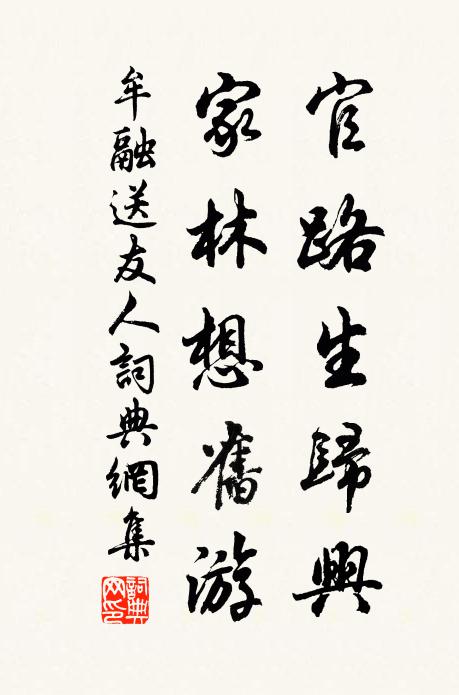 官路生歸興
家林想舊游
牟融送友人詞典網集
詞典網印